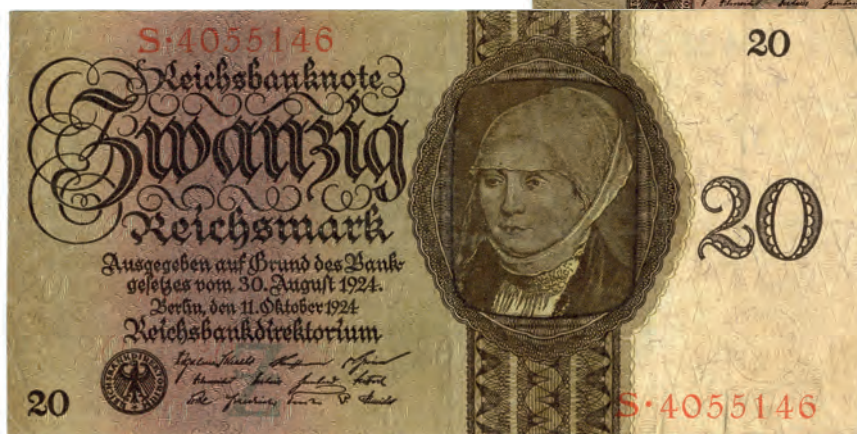 S·4055146
20
Reichsbanknote
Zwanzig
Reichsmark
20
Ausgegeben auf Grund des Bank-
gesetzes vom 30. August 1924.
Berlin, den 11. Oktober 1924
Reichsbankdirektorium
REICHSBANKDIREKTORIUM
20
S·4055146